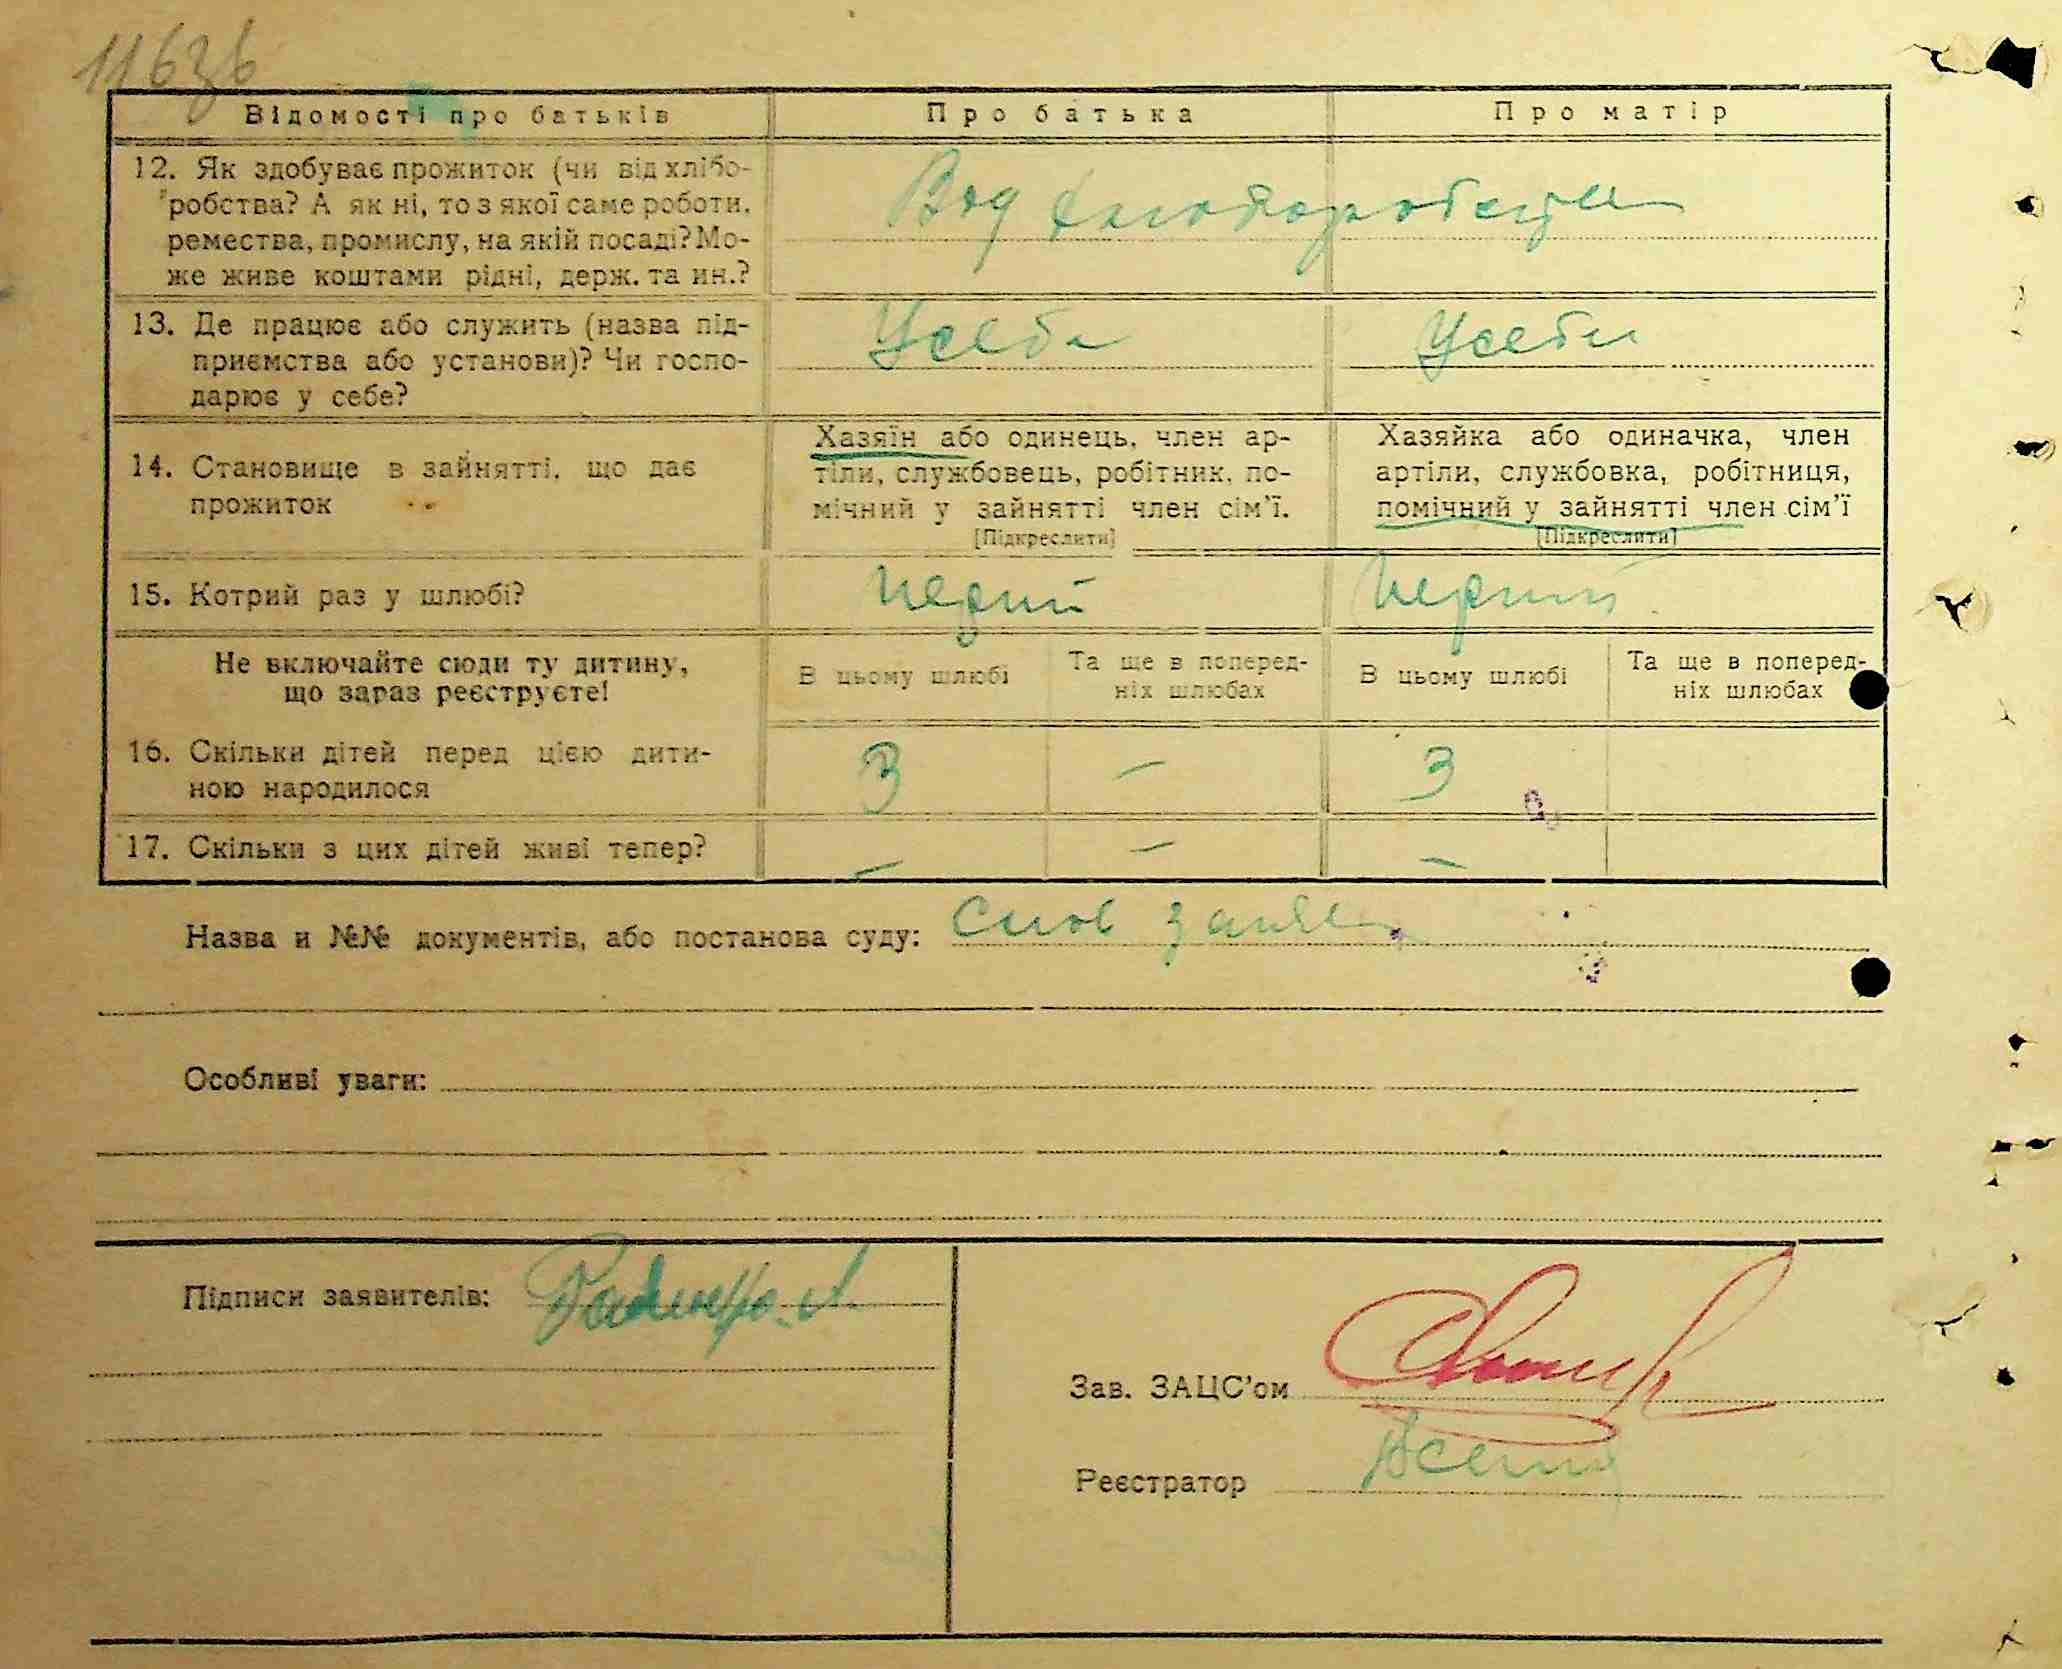 11636
Відомості про батьків
Про батька
Про матір
12. Як здобуває прожиток (чи від хлібо-
робства? А як ні, то з якої саме роботи,
ремества, промислу, на якій посаді? Мо-
же живе коштами рідні, держ. та ин.?
Від хліборобства
13. Де працює або служить (назва під-
приємства або установи)? Чи госпо-
дарює у себе?
Усебе
Усебе
14. Становище в зайнятті, що дає
прожиток
Хазяїн або одинець, член ар-
тіли, службовець, робітник, по-
мічний у зайнятті член сім'ї.
[Підкреслити]
Хазяйка або одиначка, член
артіли, службовка, робітниця,
помічний у зайнятті член сім'ї
[Підкреслити]
15. Котрий раз у шлюбі?
перший
перший
Не включайте сюди ту дитину,
що зараз реєструєте!
В цьому шлюбі
Та ще в поперед-
ніх шлюбах
В цьому шлюбі
Та ще в поперед-
ніх шлюбах
16. Скільки дітей перед цією дити-
ною народилося
3
–
3
17. Скільки з цих дітей живі тепер?
–
–
–
Назва и №№ документів, або постанова суду:
Особливі уваги:
Підписи заявителів:
Зав. ЗАЦС'ом
Реєстратор